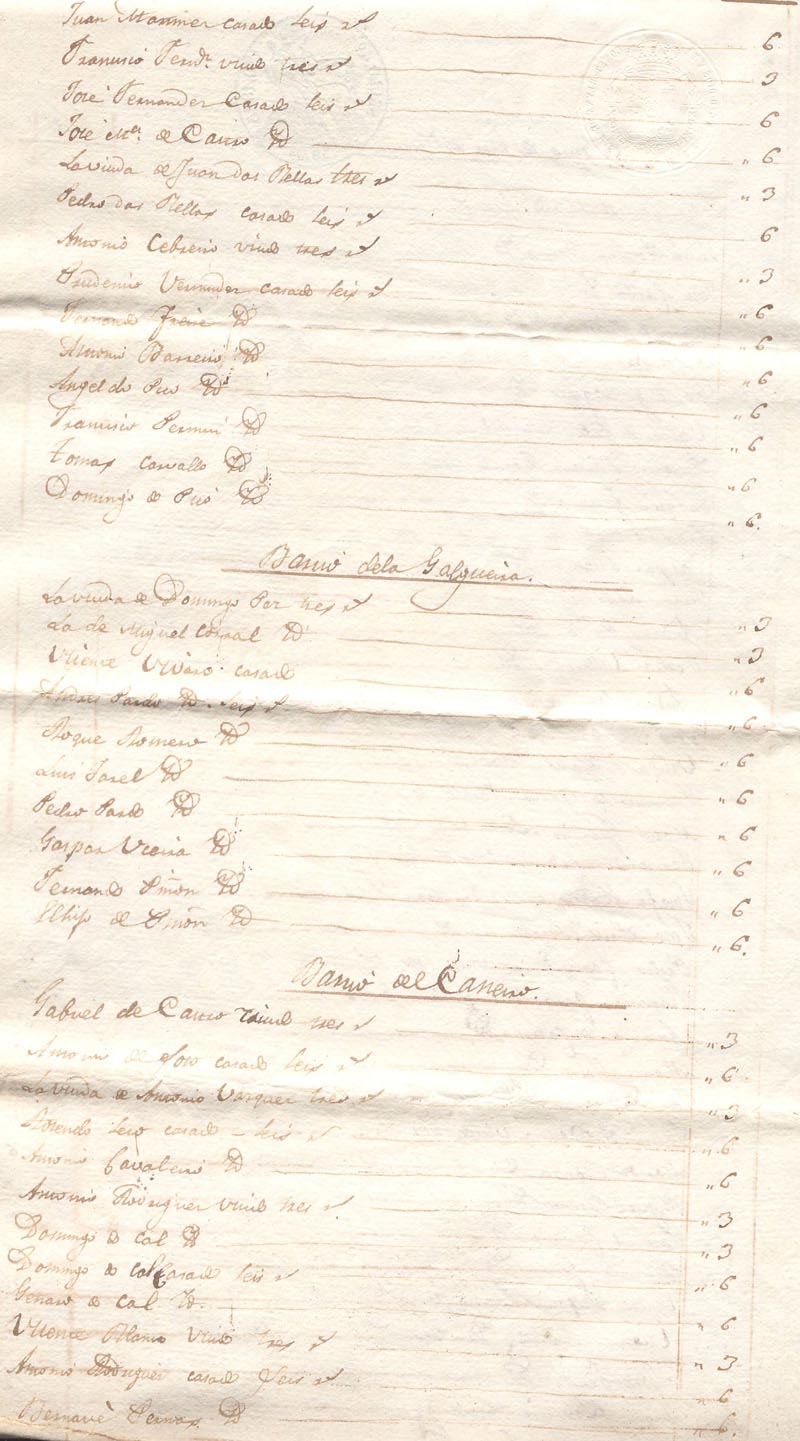 Juan Mariner casado seis rs 6
Francisco Fernz. viudo tres rs 3
José Fernandez Casado seis rs 6
José Ma. de Castro Yd " 6
La viuda de Juan das Pellas tres rs " 3
Pedro das Pellas casado seis rs 6
Antonio Cebreiro viudo tres rs " 3
Prudencio casado seis rs " 6
Fernando Freire Yd " 6
Antonio Barreiro Yd " 6
Angel do Pico Yd " 6
Francisco Yd " 6
Tomas Carvallo Yd " 6
Domingo do Pico Yd " 6.
Barrio de la Galgueira.
La viuda de Domingo Pez tres rs " 3
La de Miguel Corral Yd " 3
Vicente Vivero casado " 6
Andres Pardo Yd. seis rs " 6
Roque Romero Yd " 6
Luis Yd " 6
Pedro Pardo Yd " 6
Gaspar Vieira Yd " 6
Fernando Piñon Yd " 6
El hijo de Piñon Yd " 6.
Barrio del Carreiro.
Gabriel de Castro viudo tres rs " 3
Antonio de Soto casado seis rs " 6
La viuda de Antonio Vazquez tres rs " 3
Rosendo casado - seis rs " 6
Antonio Cavaleiro Yd " 6
Antonio Rodriguez viudo tres rs " 3
Domingo de Cal Yd " 3
Domingo de Cal Casado seis rs " 6
Genaro de Cal Yd. " 6
Vicente Blanco viudo tres rs " 3
Antonio Rodriguez casado seis rs " 6
Bernavé Yd " 6.